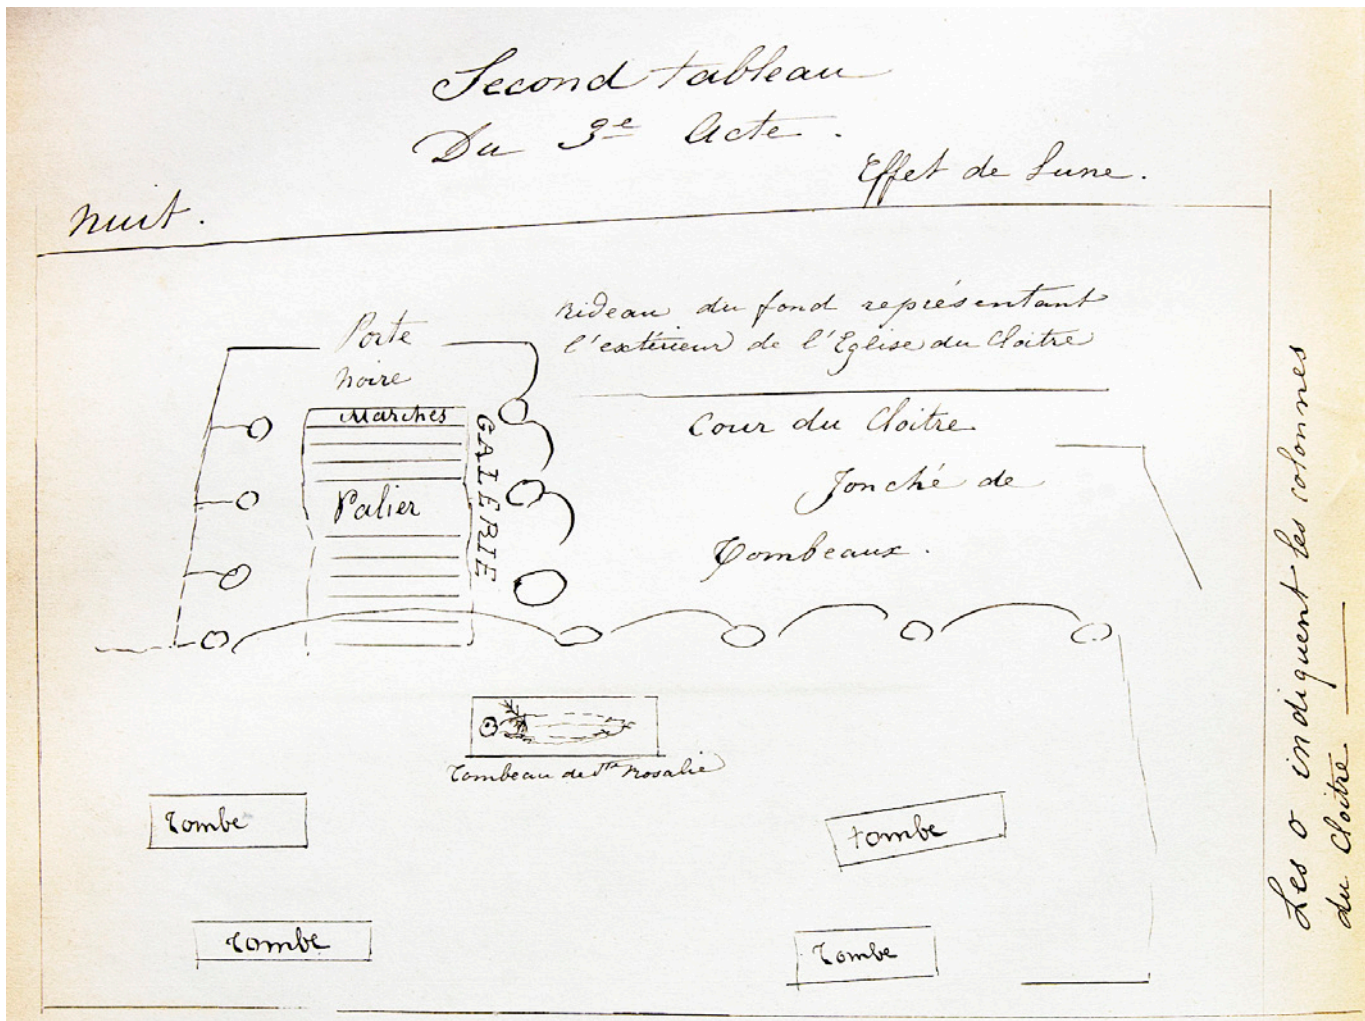 Second tableau
Du 3e Acte.
Effet de Lune.
nuit.
Rideau du fond représentant
l'extérieur de l'Eglise du Cloitre
Porte
noire
Marches
GALERIE
Palier
Cour du Cloitre
Jonché de
Tombeaux.
Tombeau de Ste Rosalie
Tombe
tombe
Tombe
Tombe
Les o indiquent les colonnes
du Cloitre